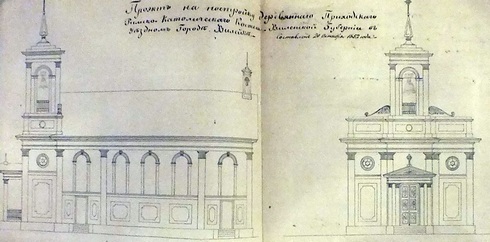 Проэктъ на постройку деревяннаго Приходскаго
Римско Католическаго Виленской Губерніи въ
Уѣздномъ Городѣ Вилейкѣ. Составленъ года